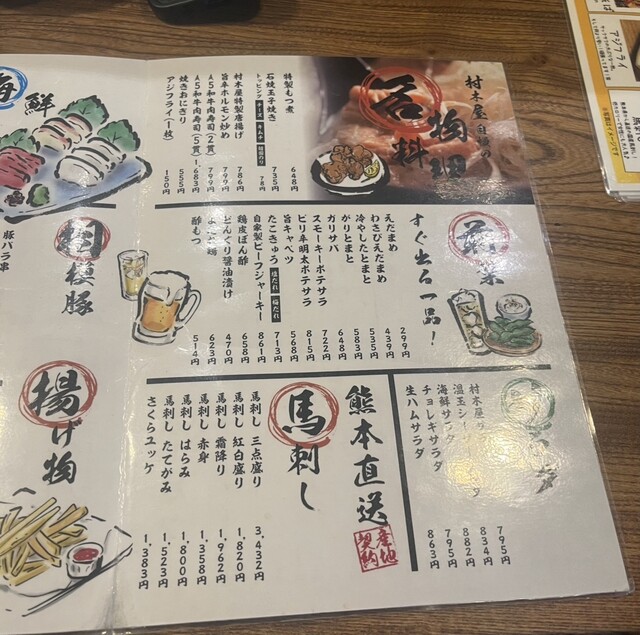 村木屋自慢の
名物料理
特製もつ煮 648円
石焼玉子焼き 735円
トッピング チーズ キムチ 78円
村木屋特製唐揚げ 786円
旨辛ホルモン炒め 799円
A5和牛肉寿司(2貫) 799円
A5和牛肉寿司(5貫) 1,683円
焼きおにぎり 555円
アジフライ(1枚) 150円
海鮮
菜
すぐ出る一品!
えだまめ 299円
わさびえだまめ 439円
冷やしたとまと 535円
がりとまと 583円
ガリサバ 648円
スモーキーポテサラ 722円
ピリ辛明太ポテサラ 815円
旨キャベツ 568円
たこきゅう 梅だれ 713円
自家製ビーフジャーキー 861円
鶏皮ぽん酢 658円
どんぐり醤油漬け 470円
鶏 623円
酢もつ 514円
相模豚
豚バラ串
村木屋 795円
温玉シー サラダ 834円
海鮮サラダ 882円
チョレギサラダ 795円
生ハムサラダ 863円
熊本直送
産地契約
馬刺し
馬刺し 三点盛り 3,432円
馬刺し 紅白盛り 1,820円
馬刺し 霜降り 1,962円
馬刺し 赤身 1,358円
馬刺し はらみ 1,800円
馬刺し たてがみ 1,523円
さくらユッケ 1,383円
揚げ物
アジフライ